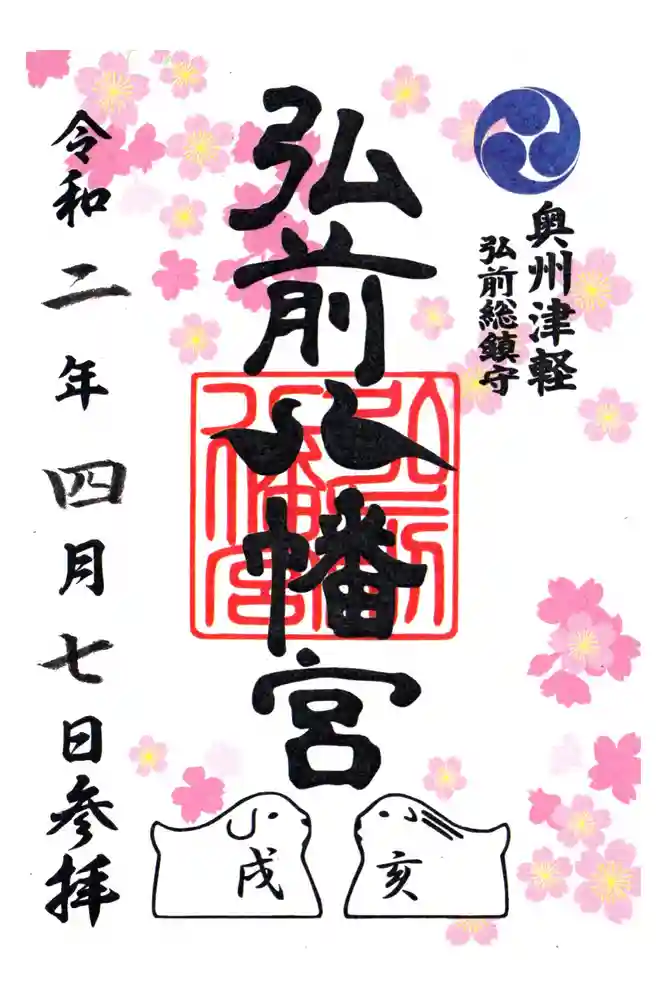 奥州津軽
弘前総鎮守
弘前八幡宮
弘前八幡宮
令和二年四月七日参拝
亥
戌